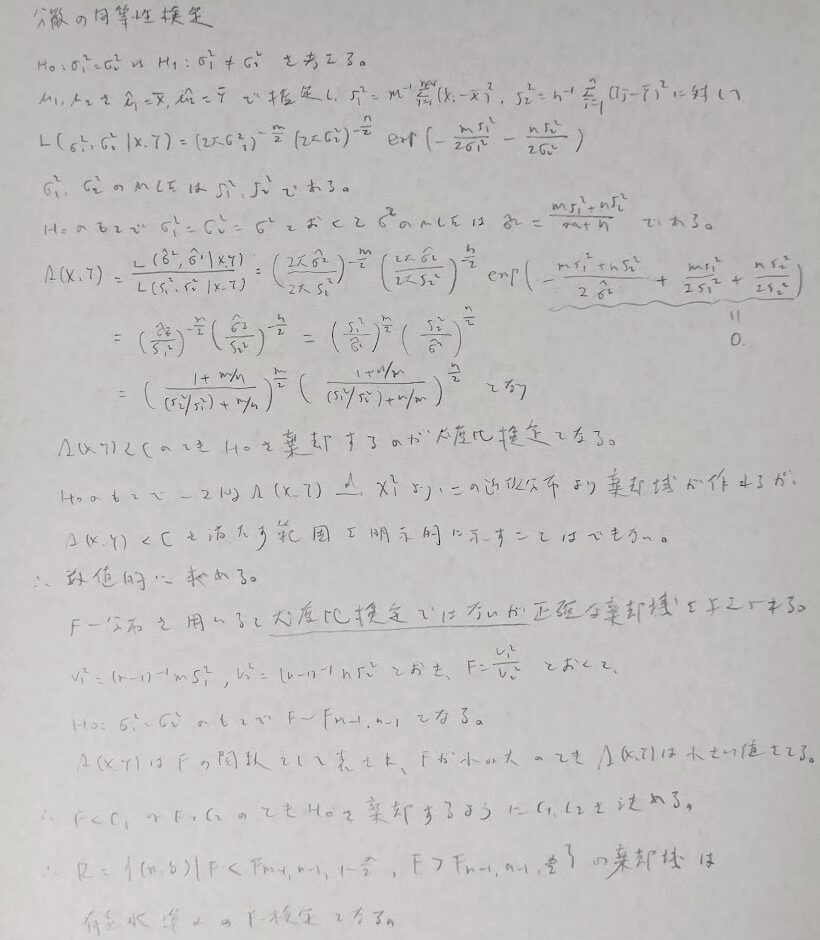 分散の同等性検定
H₀: σ₁²=σ₂² vs H₁: σ₁²≠σ₂² を考える。
μ₁, μ₂を μ̂₁=x̄, μ̂₂=ȳ で推定し, S₁²=m⁻¹Σᵢ₌₁ᵐ(xᵢ-x̄)², S₂²=n⁻¹Σᵢ₌₁ⁿ(yᵢ-ȳ)² に対し
L(σ₁², σ₂²|x,y) = (2πσ₁²)^(-m/2) (2πσ₂²)^(-n/2) exp(- mS₁²/2σ₁² - nS₂²/2σ₂²)
σ₁², σ₂² のMLEは S₁², S₂² である。
H₀のもとで σ₁²=σ₂²=σ² とおくと σ²のMLEは σ̂²= (mS₁²+nS₂²)/(m+n) である。
Λ(x,y) = L(σ̂², σ̂²|x,y)/L(S₁², S₂²|x,y) = (2πσ̂²/2πS₁²)^(-m/2) (2πσ̂²/2πS₂²)^(-n/2) exp(- (mS₁²+nS₂²)/2σ̂² + mS₁²/2S₁² + nS₂²/2S₂²)
= (σ̂²/S₁²)^(-m/2) (σ̂²/S₂²)^(-n/2) = (S₁²/σ̂²)^(m/2) (S₂²/σ̂²)^(n/2)
॥
0.
= ((1+m/n)/((S₂²/S₁²)+m/n))^(m/2) ((1+n/m)/((S₁²/S₂²)+n/m))^(n/2) となり
Λ(x,y)<C のとき H₀を棄却するのが尤度比検定となる。
H₀のもとで -2log Λ(x,y) →d χ₁² より, この近似分布より棄却域が作れるが、
Λ(x,y)<C を満たす範囲を明示的に示すことはできない。
∴ 数値的に求める。
F-分布を用いると尤度比検定ではないが正確な棄却域を与えられる。
V₁²=(m-1)⁻¹mS₁², V₂²=(n-1)⁻¹nS₂² とおき, F=V₁²/V₂² とおくと、
H₀: σ₁²=σ₂² のもとで F~Fm-1,n-1 となる。
Λ(x,y)は Fの関数として表せ、Fが小か大のとき Λ(x,y)は小さい値をとる。
∴ F<C₁ or F>C₂ のとき H₀を棄却するように C₁, C₂を決める。
∴ R = {(x,y)|F<Fm-1,n-1,1-α/2, F>Fm-1,n-1,α/2} の棄却域は
有意水準αのF-検定となる。